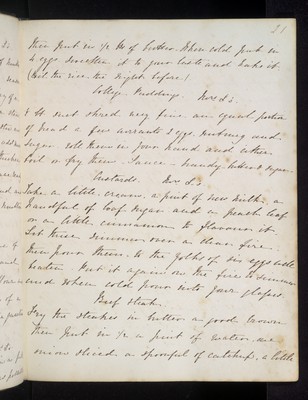 21
then put in 1/2 lb of butter. When cold put in
4 eggs sweeten it to your taste and bake it.
(boil the rice the night before)
College Puddings. Mrs L's
1 lb suet shred very fine an equal portion
of bread a few currants 3 eggs nutmeg and
sugar roll them in your hand and either
boil or fry them. Sauce - brandy butter & sugar
Custards. Mrs L's
Take a little cream, a pint of new milk, a
handful of loaf sugar and a peach leaf
or a little cinnamon to flavour it.
Let these simmer over a clear fire.
then pour them to the yolks of six eggs well
beaten. Put it again on the fire to simmer
and when cold pour into your glasses.
Beef Steaks.
Fry the steaks in butter a good brown
then put in 1/2 a pint of water an
onion sliced a spoonful of catchup, a little